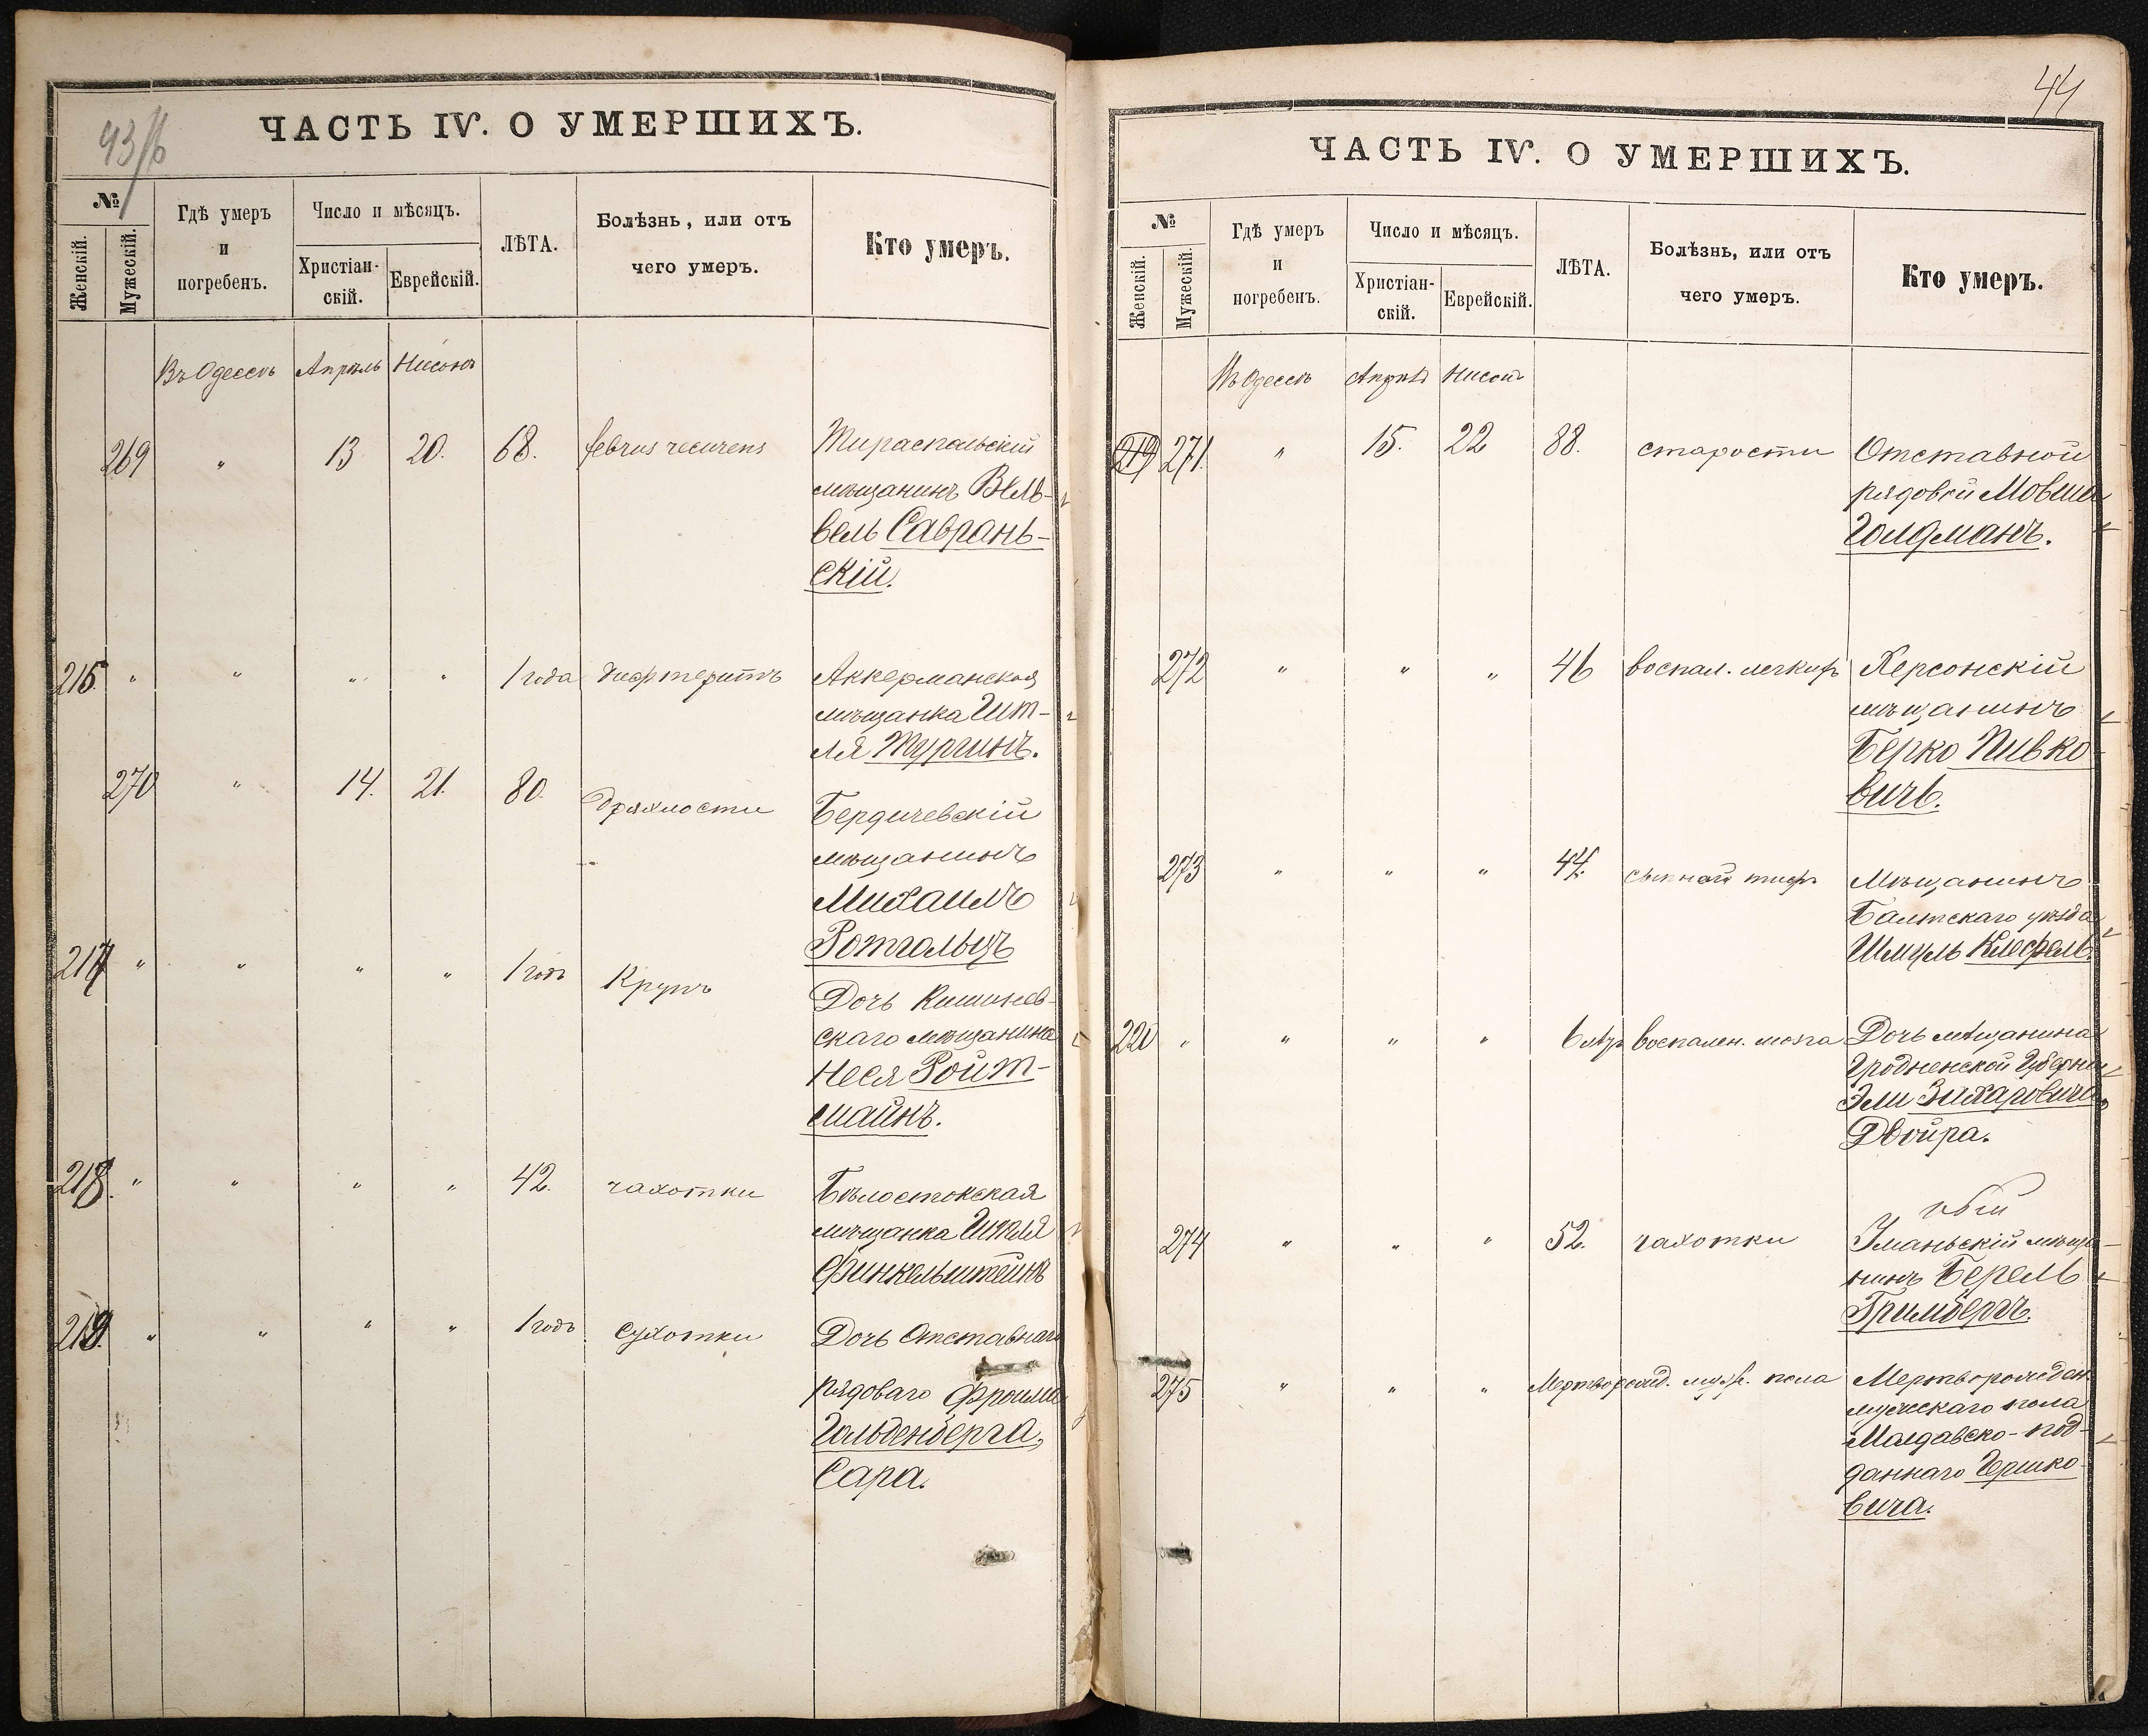 43/б
ЧАСТЬ IV. О УМЕРШИХЪ.
№
Женскій.
Мужескій.
Гдѣ умеръ
и
погребенъ.
Число и мѣсяцъ.
Христіан-
скій.
Еврейскій.
ЛѢТА.
Болѣзнь, или отъ
чего умеръ.
Кто умеръ.
Въ Одессѣ Апрѣль Нисонъ
269 " 13 20. 68. februs recurens Тираспольскій
мѣщанинъ Вель-
вель Саврань-
скій.
216 " " " " 1 года дифтеритъ Аккерманская
мѣщанка Ит-
ля Тургинъ.
270 " 14. 21. 80. Дряхлости Бердичевскій
мѣщанинъ
Михаилъ
Ротгольцъ
217 " " " " 1 годъ Крупъ Дочь Кишинев-
скаго мѣщанина
Неся Ройт-
майнъ.
218. " " " " 42. чахотки Бѣлостокская
мѣщанка
Финкельштейнъ
219. " " " " 1 годъ сухотки Дочь Отставнаго
рядоваго Фроима
Гольденберга,
Сара.
44
ЧАСТЬ IV. О УМЕРШИХЪ.
№
Женскій.
Мужескій.
Гдѣ умеръ
и
погребенъ.
Число и мѣсяцъ.
Христіан-
скій.
Еврейскій.
ЛѢТА.
Болѣзнь, или отъ
чего умеръ.
Кто умеръ.
Въ Одессѣ Апрѣль Нисонъ
219 271. " 15. 22 88. старости Отставной
рядовой Мовша
Голдманъ.
272 " " " 46 воспал. легкихъ Херсонскій
мѣщанинъ
Берко Пивко-
вичъ.
273 " " " 44. сыпной тифъ Мѣщанинъ
Балтскаго уѣзда
Шмуль Клефель.
220 " " " " 6 лѣтъ воспален. мозга Дочь мѣщанина
Гродненской Губерніи
Эли Зихаровича,
Двойра.
274 " " " 52. чахотки Уманьскій мѣща-
нинъ Берель
Гримбергъ.
275 " " " Мертворожд. муж. пола Мертворожден.
мужескаго пола
Молдавско-под-
даннаго Гершко-
вича.